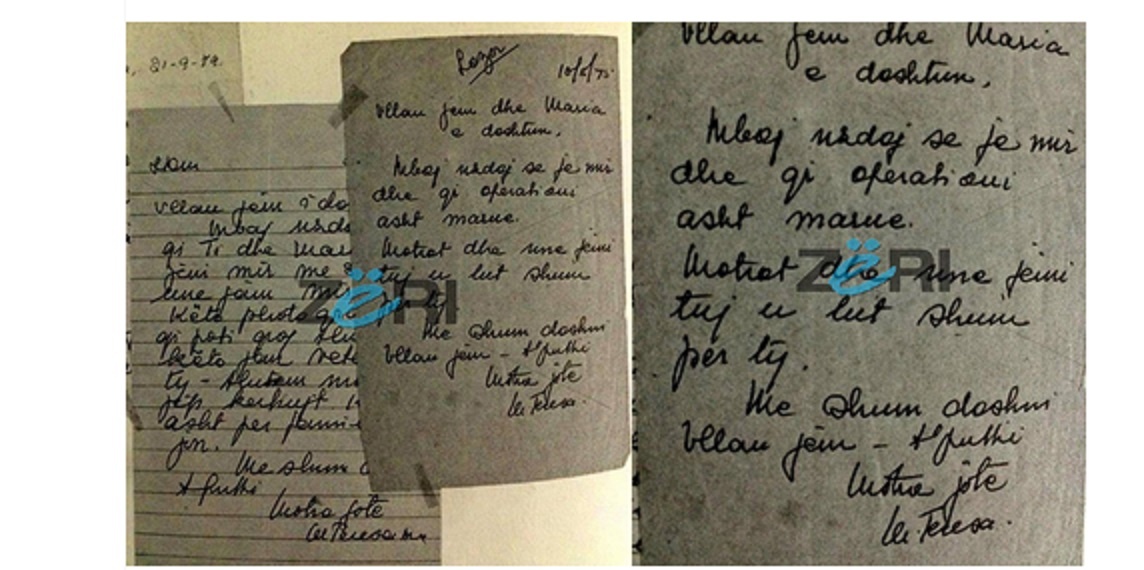 21-9-79.
vëllau jëm i do
Mbaj urdo
qi Ti dhe Mar
jëni mir me
une jam mir
Këta photog
qi pati
këto jan
ty -
asht per famil
jon.
Me shum d
+ puthi
Motra jote
M Teresa m.c.
Lazar
10/6/75
vllau jem dhe Maria
e dashtun,
Mbaj urdaj se je mir
dhe qi operationi
asht marue.
Motrat dhe une jemi
tuj u lut shum
per ty.
Me shum dashni
vllau jëm - të puthi
Motra jote
M Teresa.
ZËRI
vllau jem dhe Maria
e dashtun,
Mbaj urdaj se je mir
dhe qi operationi
asht marue.
Motrat dhe une jemi
tuj u lut shum
per ty.
Me shum dashni
vllau jëm - të puthi
Motra jote
M Teresa.
ZËRI